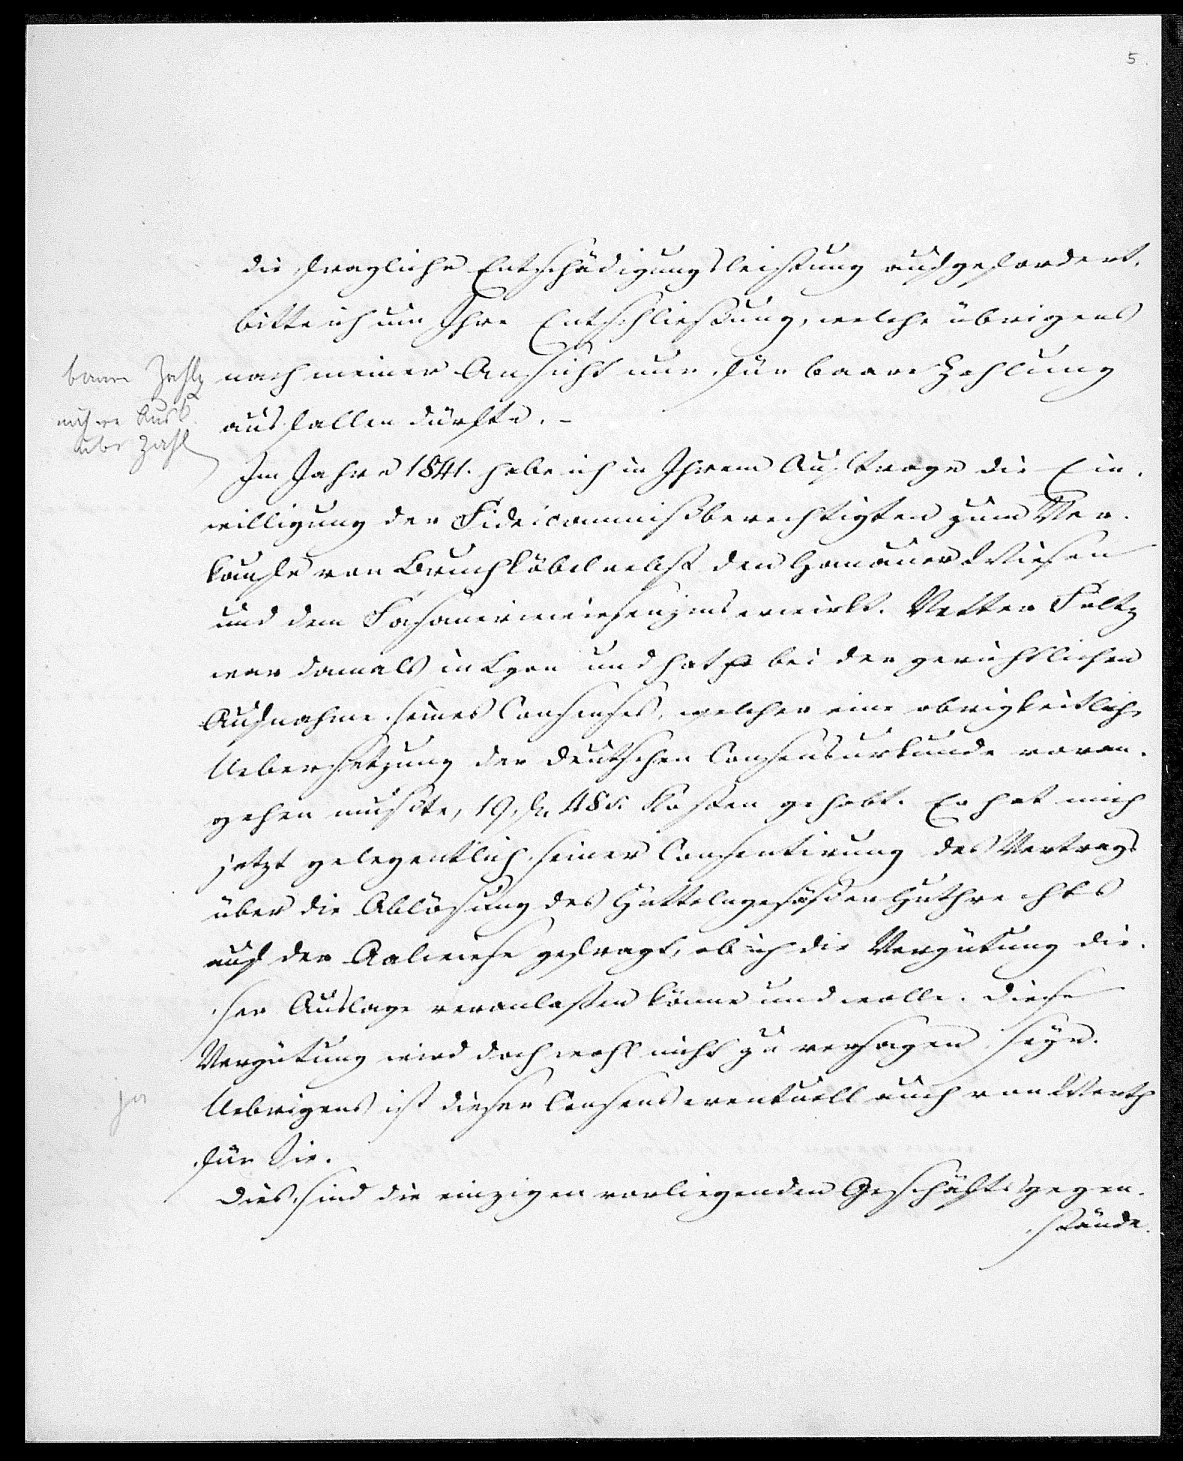 5.
die fragliche Entschädigungsleistung aufgefordert.
bitte ich um Ihre Entschließung, welche übrigens
nach meiner Ansicht nur für baare Zahlung
ausfallen dürfte. –
baare Zahlg
Im Jahre 1841. habe ich in Ihrem Auftrage die Ein-
willigung der Fideicommißberechtigten zum Ver-
kaufe von Bruchköbel nebst den Hanauer Wiesen
und dem erwirkt. Vetter Foltz
war damals in Lyon und hat bei der gerichtlichen
Aufnahme seines Consenses, welcher eine obrigkeitliche
Uebersetzung der deutschen Consensurkunde voran-
gehen mußte, 19 f. 48 x. Kosten gehabt. Er hat mich
jetzt gelegentlich seiner Consentirung des Vertrags
über die Ablösung des Hüttelngesäßer Huthrechts
auf der gefragt, ob ich die Vergütung die-
ser Auslage veranlaßen könne und wolle. Diese
Vergütung wird doch wohl nicht zu versagen seyn.
ja
Uebrigens ist dieser Consens eventuell auch von Werth
für Sie.
Dies sind die einzigen vorliegenden Geschäftsgegen-
stände.